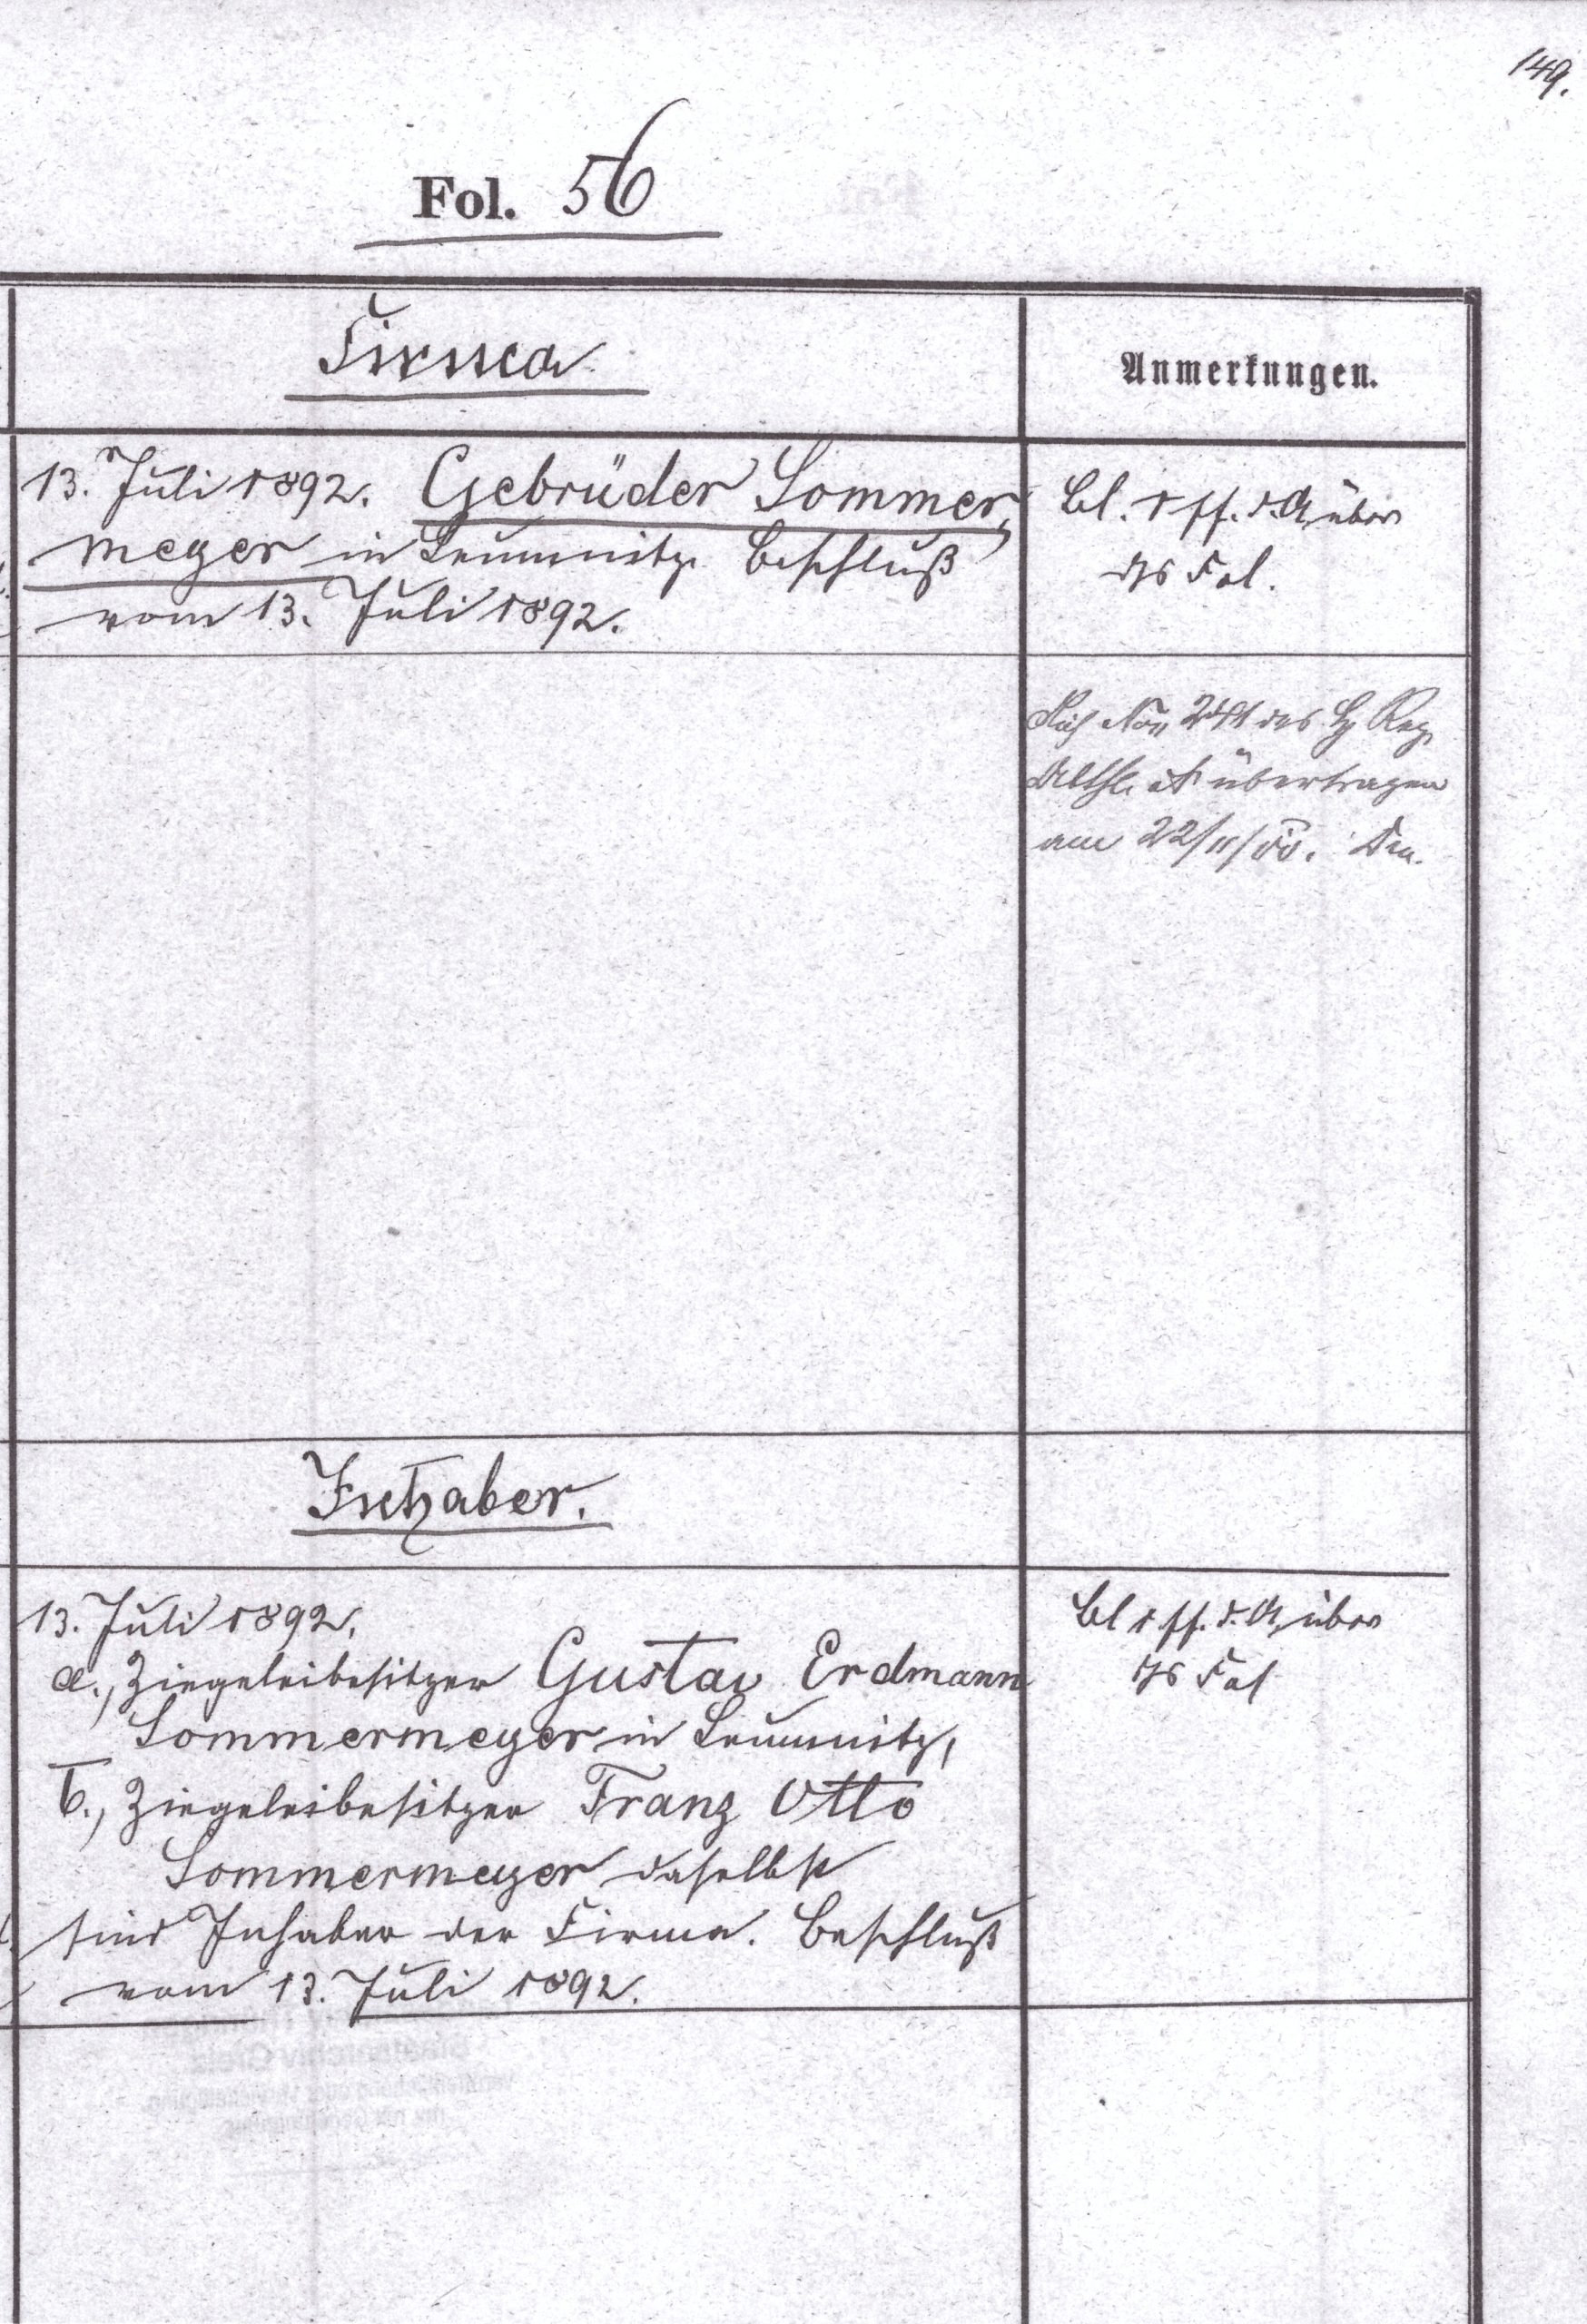 149.
Fol. 56
Firma
Anmerkungen.
13. Juli 1892. Gebrüder Sommer-
meyer in Leumnitz. Beschluß
vom 13. Juli 1892.
Bl. 1 ff. d. A. über
ds Fol.
Auf No 241 des Reg.
Abth. A übertragen
am 22/11/00.
Inhaber.
13. Juli 1892.
a., Ziegeleibesitzer Gustav Erdmann
Sommermeyer in Leumnitz,
b., Ziegeleibesitzer Franz Otto
Sommermeyer daselbst
sind Inhaber der Firma. Beschluß
vom 13. Juli 1892.
Bl 1 ff. d. A. über
ds Fol